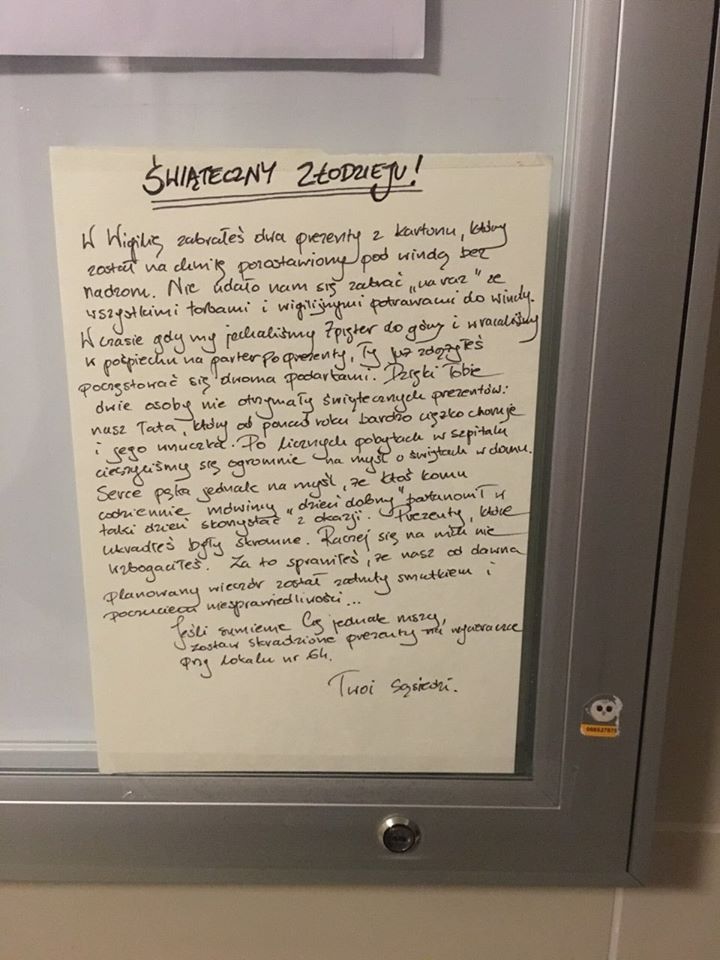 ŚWIĄTECZNY ZŁODZIEJU!
W Wigilię zabrałeś dwa prezenty z kartonu, który
został na chwilę pozostawiony pod windą bez
nadzoru. Nie udało nam się zabrać „na raz" ze
wszystkimi torbami i wigilijnymi potrawami do windy.
W czasie gdy my jechaliśmy 7 pięter do góry i wracaliśmy
w pośpiechu na parter po prezenty, Ty już zdążyłeś
poczęstować się dwoma podarkami. Dzięki Tobie
dwie osoby nie otrzymały świątecznych prezentów:
nasz Tata, który od ponad roku bardzo ciężko choruje
i jego wnuczka. Po licznych pobytach w szpitalu
cieszyliśmy się ogromnie na myśl o świętach w domu.
Serce pęka jednak na myśl, że ktoś komu
codziennie mówimy „dzień dobry" postanowił w
taki dzień skorzystać z okazji. Prezenty, które
ukradłeś były skromne. Raczej się na nich nie
wzbogaciłeś. Za to sprawiłeś, że nasz od dawna
planowany wieczór został zadnuty smutkiem i
poczuciem niesprawiedliwości...
Jeśli sumienie Cię jednak ruszy,
zostaw skradzione prezenty na wycieraczce
przy lokalu nr 64.
Twoi sąsiedzi.